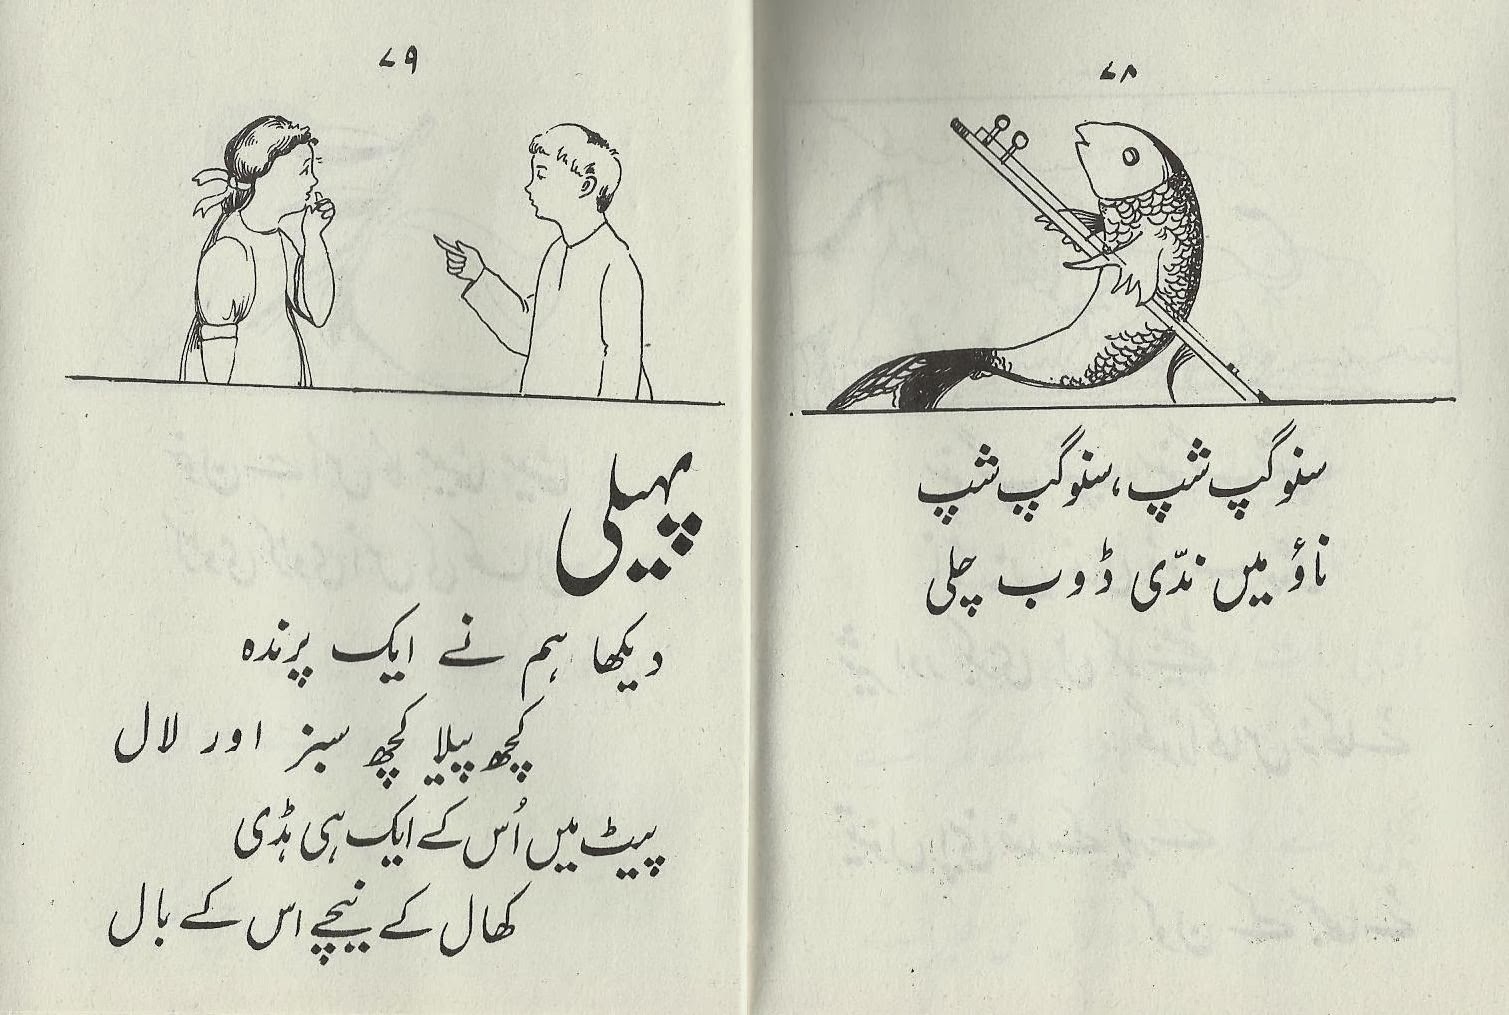 ۷۸
سنو گپ شپ، سنو گپ شپ
ناؤ میں ندّی ڈوب چلی
۷۹
پہیلی
دیکھا ہم نے ایک پرندہ
کچھ پیلا کچھ سبز اور لال
پیٹ میں اُس کے ایک ہی ہڈی
کھال کے نیچے اس کے بال